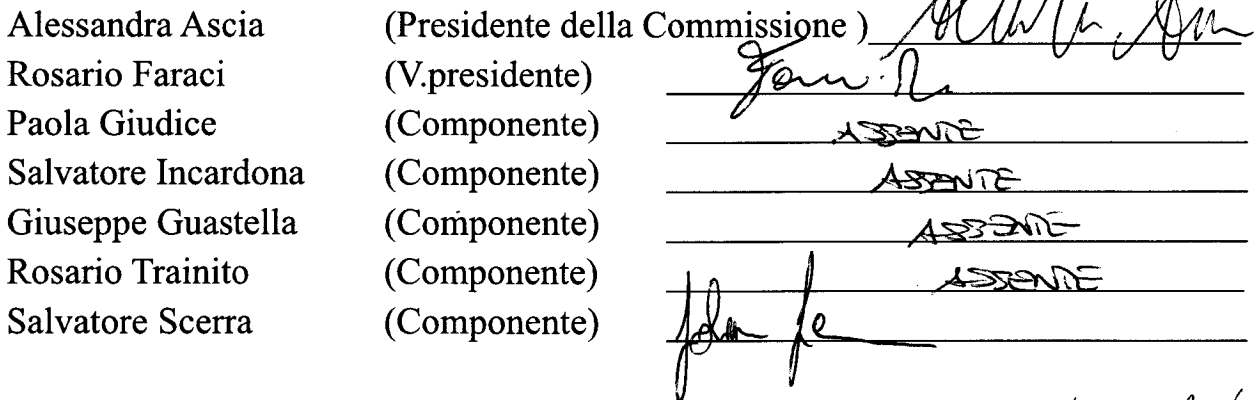 Alessandra Ascia (Presidente della Commissione )
Rosario Faraci (V.presidente)
Paola Giudice (Componente) ASSENTE
Salvatore Incardona (Componente) ASSENTE
Giuseppe Guastella (Componente) ASSENTE
Rosario Trainito (Componente) ASSENTE
Salvatore Scerra (Componente)